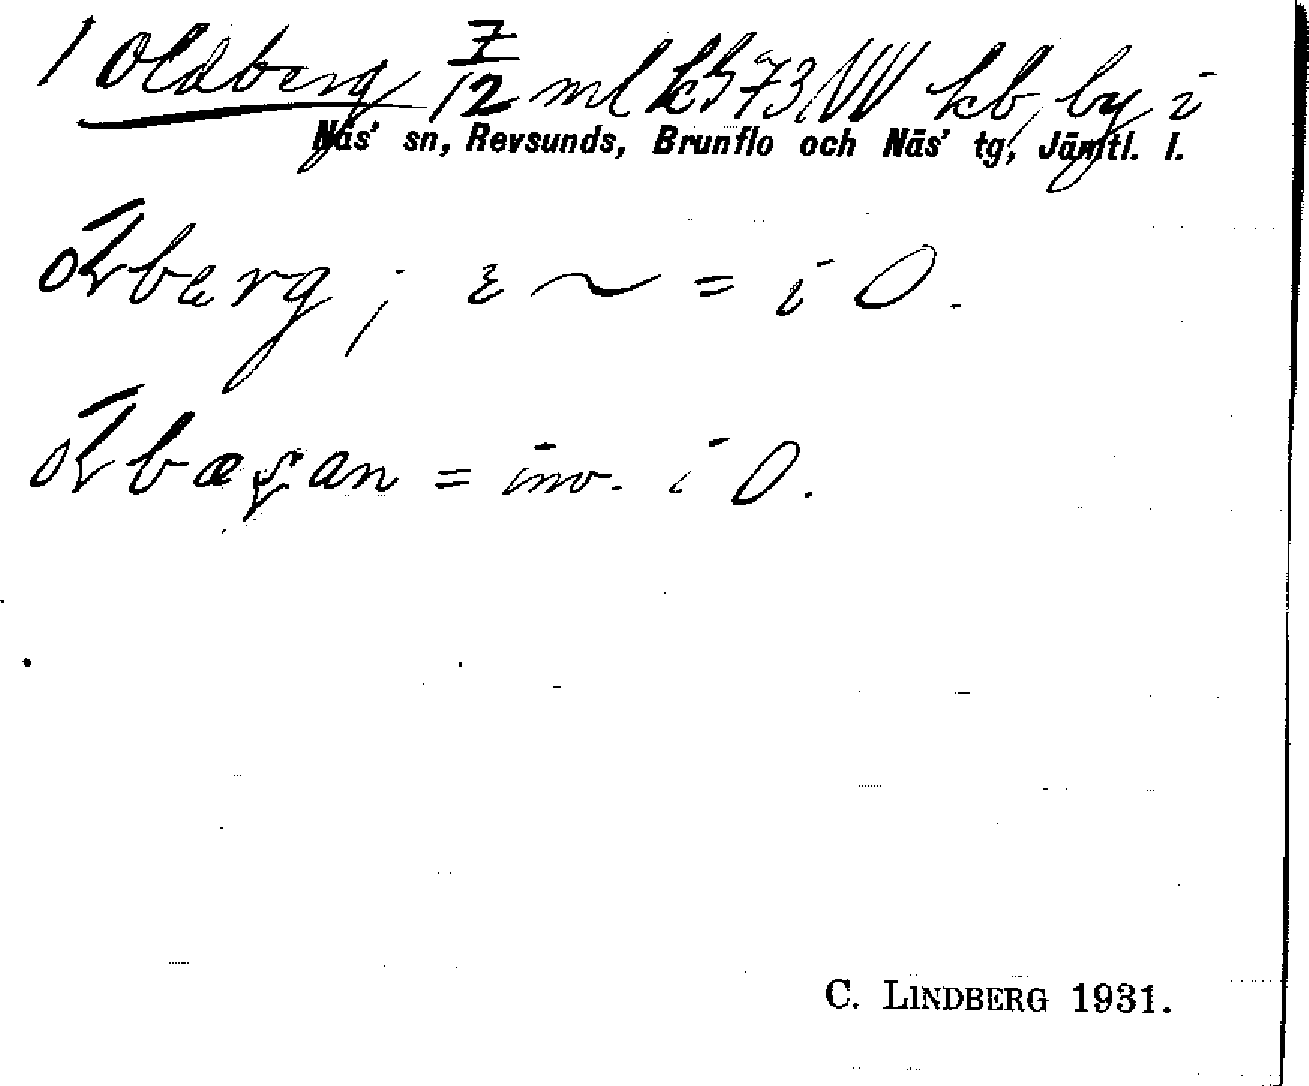 1 Oldberg 7/12 ml k573NV kb, by i
Näs' sn, Revsunds, Brunflo och Näs' tg, Jämtl. l.
berg; i ~ = i O.
= inv. i O.
C. LINDBERG 1931.